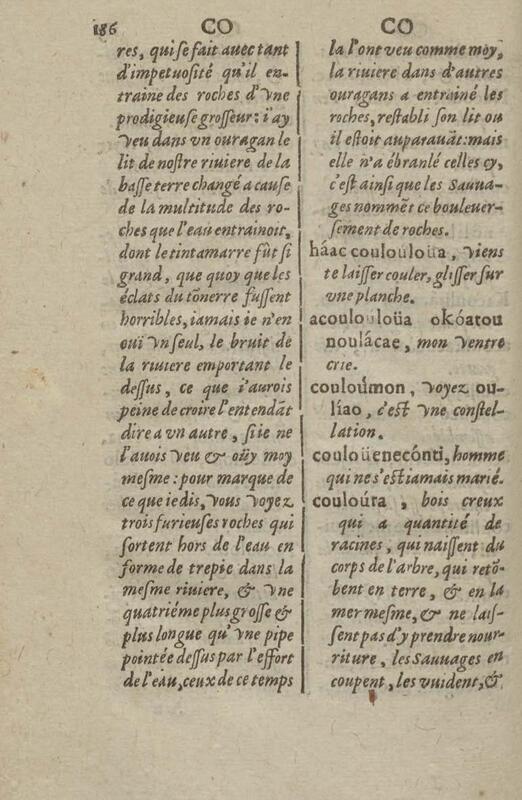 186 CO CO
res, qui se fait auec tant
d'impetuosité qu'il en-
traine des roches d'vne
prodigieuse grosseur: i'ay
veu dans vn ouragan le
lit de nostre riuiere de la
basse terre changé a cause
de la multitude des ro-
ches que l'eau entrainoit,
dont le tintamarre fût si
grand, que quoy que les
éclats du tõnerre fussent
horribles, iamais ie n'en
ouï vn seul, le bruit de
la riuiere emportant le
dessus, ce que i'aurois
peine de croire l'entendãt
dire a vn autre, si ie ne
l'auois veu & oüy moy
mesme: pour marque de
ce que ie dis, vous voyez
trois furieuses roches qui
sortent hors de l'eau en
forme de trepie dans la
mesme riuiere, & vne
quatriéme plus grosse &
plus longue qu'vne pipe
pointée dessus par l'effort
de l'eau, ceux de ce temps
la l'ont veu comme moy,
la riuiere dans d'autres
ouragans a entrainé les
roches, restabli son lit ou
il estoit auparauãt: mais
elle n'a ébranlé celles cy,
c'est ainsi que les Sauua-
ges nommẽt ce bouleuer-
sement de roches.
háac coulouloüa, viens
te laisser couler, glisser sur
vne planche.
acoulouloüa okóatou
noulácae, mon ventre
crie.
couloúmon, voyez ou-
líao, c'est vne constel-
lation.
coulouëneçónti, homme
qui ne s'est iamais marié.
couloúra, bois creux
qui a quantité de
racines, qui naissent du
corps de l'arbre, qui retõ-
bent en terre, & en la
mer mesme, & ne lais-
sent pas d'y prendre nour-
riture, les Sauuages en
coupent, les vuident, &